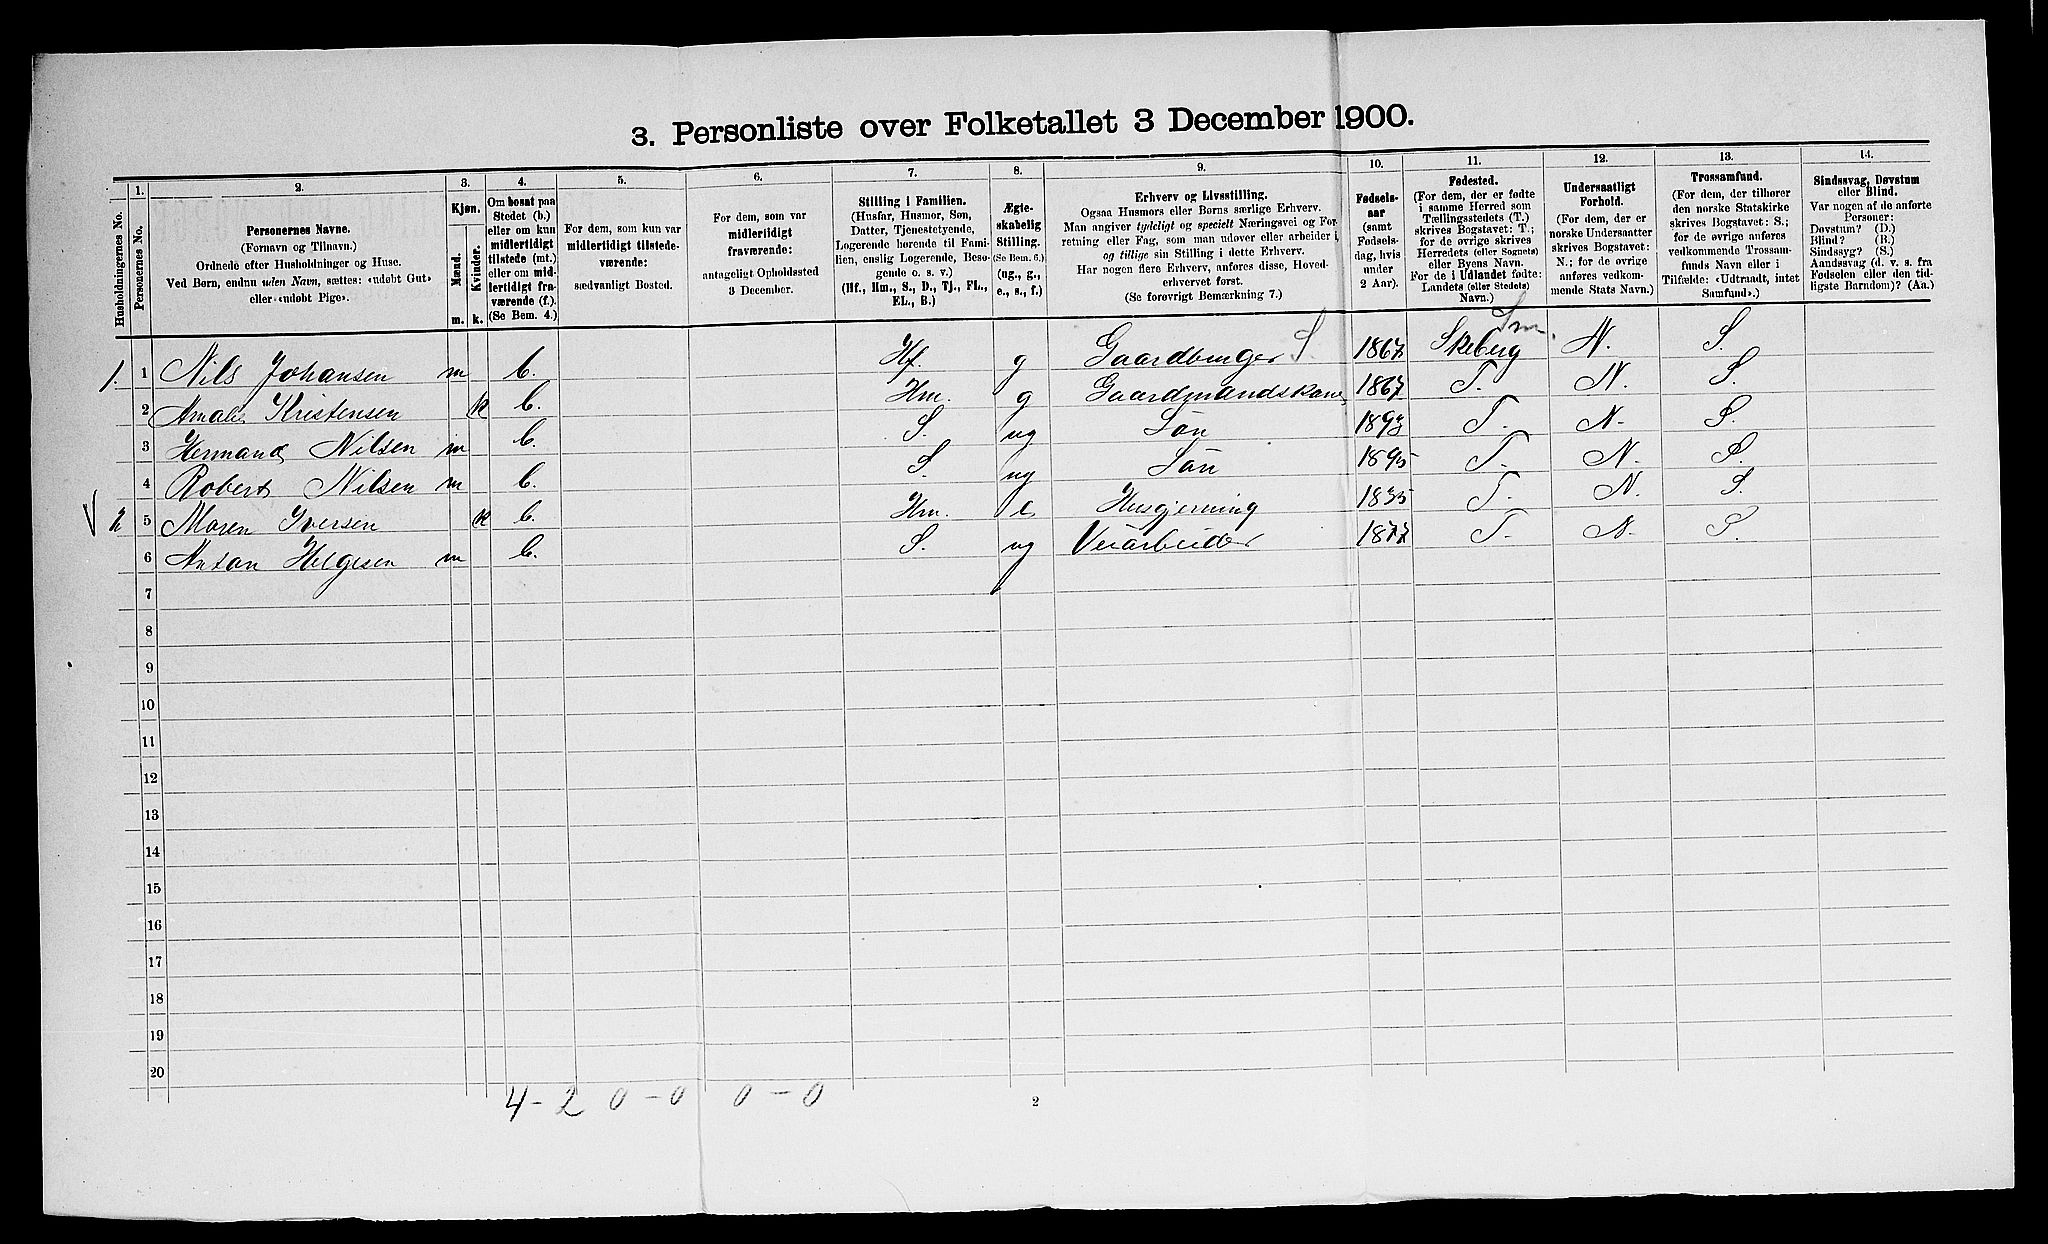 3. Personliste over Folketallet 3 December 1900.
1. 2. 3. 4. 5. 6. 7. 8. 9. 10. 11. 12. 13. 14.
Husholdningernes No.
Personernes No.
Personernes Navne.
(Fornavn og Tilnavn.)
Ordnede efter Husholdninger og Huse.
Ved Børn, endnu uden Navn, sættes: «udøbt Gut»
eller «udøbt Pige».
Kjøn.
Mænd.
Kvinder.
m. k.
Om bosat paa
Stedet (b.)
eller om kun
midlertidigt
tilstede (mt.)
eller om mid-
lertidigt fra-
værende (f.).
(Se Bem. 4.)
For dem, som kun var
midlertidigt tilstede-
værende:
sædvanligt Bosted.
For dem, som var
midlertidigt
fraværende:
antageligt Opholdssted
3 December.
Stilling i Familien.
(Husfar, Husmor, Søn,
Datter, Tjenestetyende,
Logerende hørende til Fami-
lien, enslig Logerende, Besø-
gende o. s. v.)
(Hf., Hm., S., D., Tj., FL.,
EL., B.)
Ægte-
skabelig
Stilling.
(Se Bem. 6.)
(ug., g.,
e., s., f.)
Erhverv og Livsstilling.
Ogsaa Husmors eller Børns særlige Erhverv.
Man angiver tydeligt og specielt Næringsvei og For-
retning eller Fag, som man udøver eller arbeider i,
og tillige sin Stilling i dette Erhverv.
Har nogen flere Erhverv, anføres disse, Hoved-
erhvervet først.
(Se forøvrigt Bemærkning 7.)
Fødsels-
aar
(samt
Fødsels-
dag, hvis
under
2 Aar).
Fødested.
(For dem, der er fødte
i samme Herred som
Tællingsstedets (T.)
skrives Bogstavet: T.;
for de øvrige skrives
Herredets (eller Sognets)
eller Byens Navn.
For de i Udlandet fødte:
Landets (eller Stedets)
Navn.)
Undersaatligt
Forhold.
(For dem, der er
norske Undersaatter
skrives Bogstavet:
N.; for de øvrige
anføres vedkom-
mende Stats Navn.)
Trossamfund.
(For dem, der tilhører
den norske Statskirke
skrives Bogstavet: S.;
for de øvrige anføres
vedkommende Trossam-
funds Navn eller i
Tilfælde: «Udtraadt, intet
Samfund».)
Sindssvag, Døvstum
eller Blind.
Var nogen af de anførte
Personer:
Døvstum? (D.)
Blind? (B.)
Sindssyg? (S.)
Aandssvag (d. v. s. fra
Fødselen eller den tid-
ligste Barndom)? (Aa.)
1. 1 Nils Johansen m b. Hf. g Gaardbruger S. 1867 Skeberg Sm. N. S.
2 Kristensen k b. Hm. g Gaardmandskone 1867 T. N. S.
3 Hermand Nilsen m b. S. ug Søn 1893 T. N. S.
4 Robert Nilsen m b. S ug Søn 1895 T. N. S.
2 5 Maren Iversen k b. Hm. e Husgjerning 1835 T. N. S.
6 Anton Helgesen m b. S. ug Veiarbeider 1877 T. N. S.
7
8
9
10
11
12
13
14
15
16
17
18
19
20
4 - 2 0 - 0 0 - 0
2